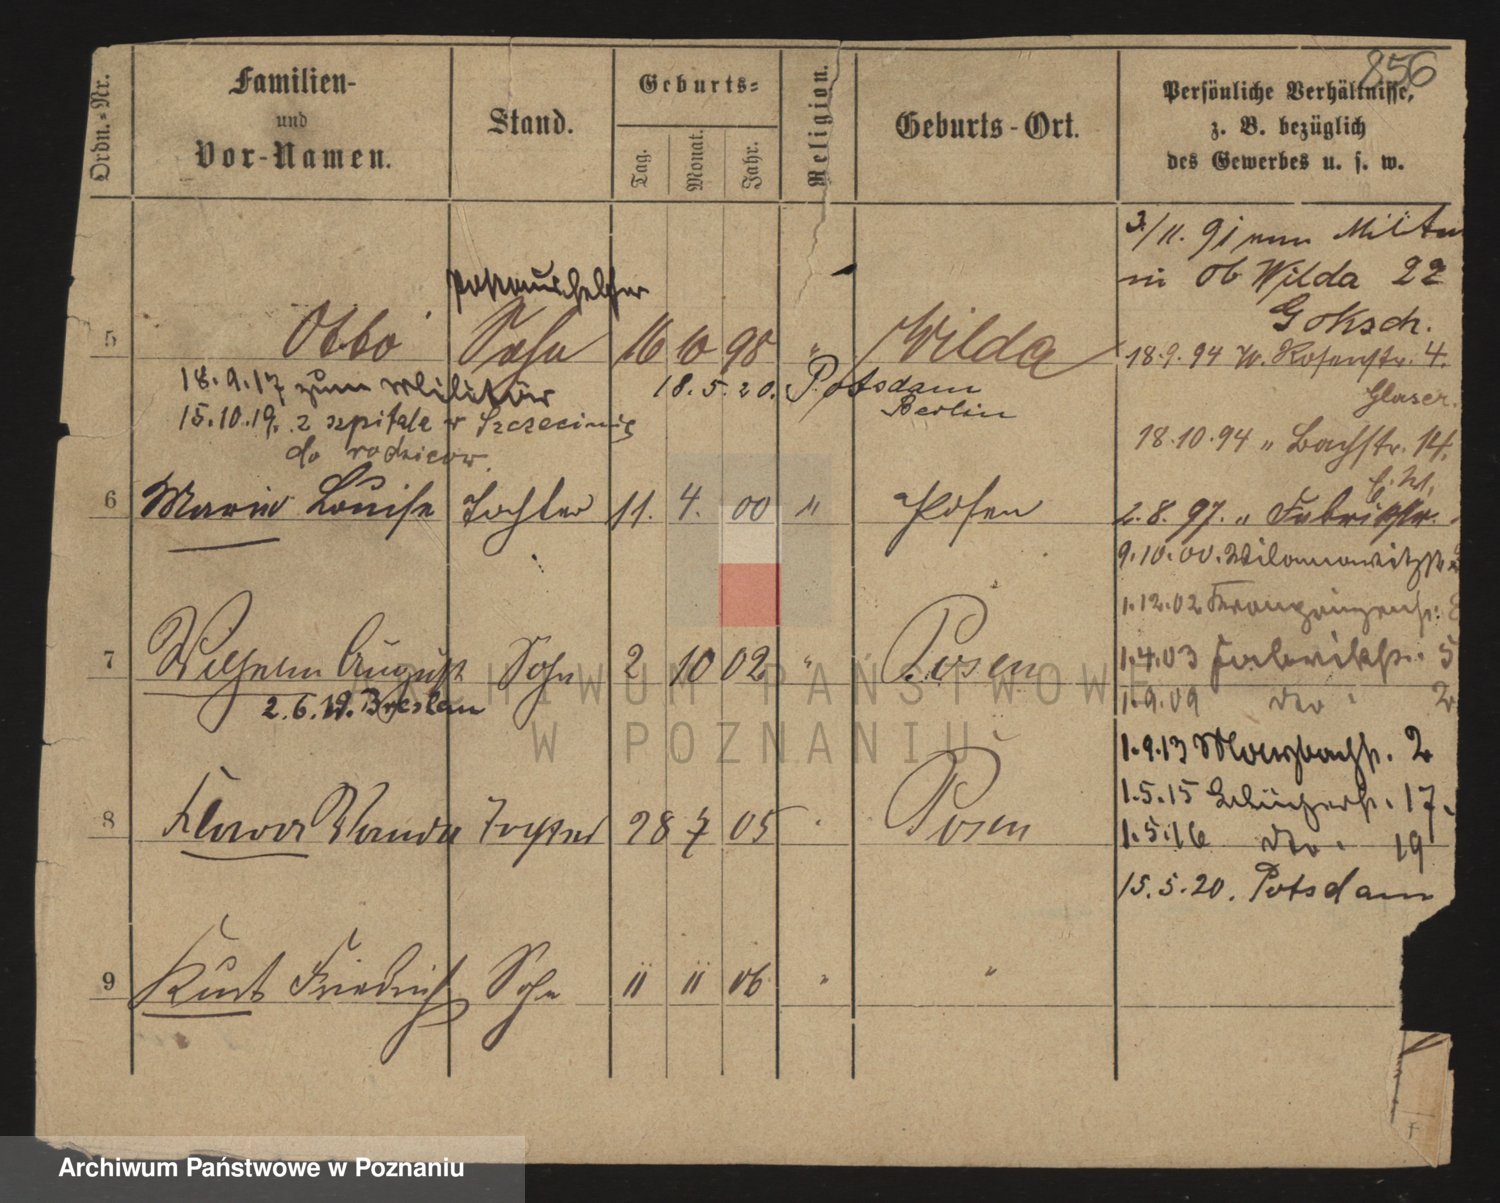 856
Ordn.-Nr.
Familien-
und
Vor-Namen.
Stand.
Geburts-
Tag.
Monat.
Jahr.
Religion.
Geburts-Ort.
Persönliche Verhältnisse,
z. B. bezüglich
des Gewerbes u. s. w.
Postaushelfer
5 Otto Sohn 16 10 98 " Wilda
18.9.17 zum Militär 18.5.20. Potsdam
Berlin
15.10.19. z szpitala w Szczecinie
do rodziców
6 Marie Louise Tochter 11. 4. 00 " Posen
7 Wilhelm August Sohn 2 10 02 " Posen
2.6.19. Breslau
8 Klara Wanda Tochter 28 7 05 " Posen
9 Kurt Friedrich Sohn 11 11 06 " "
3/11. 91 vom Militär
in Ob Wilda 22
Goksch.
18.9.94 W. Rosenstr. 4.
Glaser.
18.10.94 " Bachstr. 14.
2.8.97. " Fabrikstr.
9.10.00. Wilamowitzstr.
1.12.02
1.4.03 Fabrikstr. 5
1.9.09 dto. 2
1.9.13 2
1.5.15 17.
1.5.16 dto. 19
15.5.20. Potsdam
ARCHIWUM PAŃSTWOWE
W POZNANIU
Archiwum Państwowe w Poznaniu